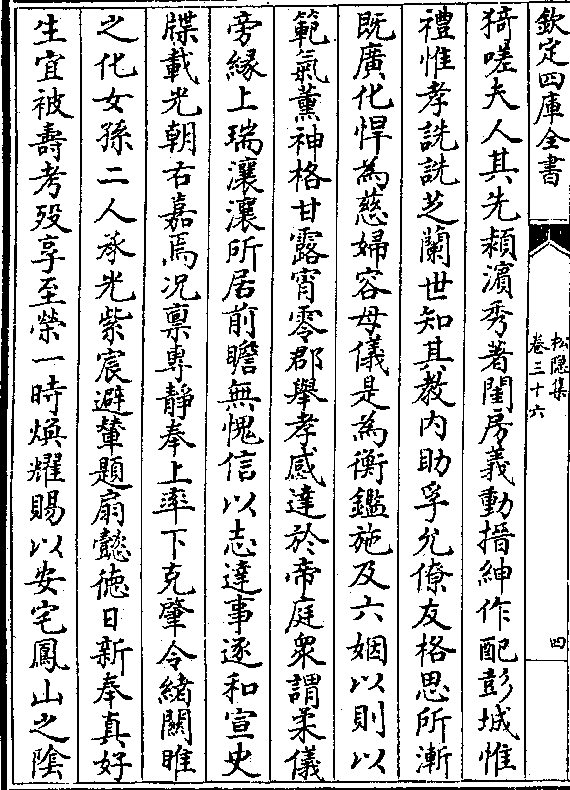 欽定四庫全書
松隠集
卷三十六
四
猗嗟夫人其先潁濵秀著閨房義動搢紳作配彭城惟
禮惟孝詵詵芝蘭世知其教内助孚允僚友格思所漸
既廣化悍為慈婦容母儀是為衡鑑施及六姻以則以
範氣薫神格甘露宵零郡舉孝感達於帝庭衆謂柔儀
旁縁上瑞瀼瀼所居前瞻無愧信以志達事逐和宣史
牒載光朝右嘉焉况禀專靜奉上率下克肇令緒闗睢
之化女孫二人承光紫宸避輦題扇懿徳日新奉真好
生宜被壽考殁享至榮一時煥耀賜以安宅鳳山之隂